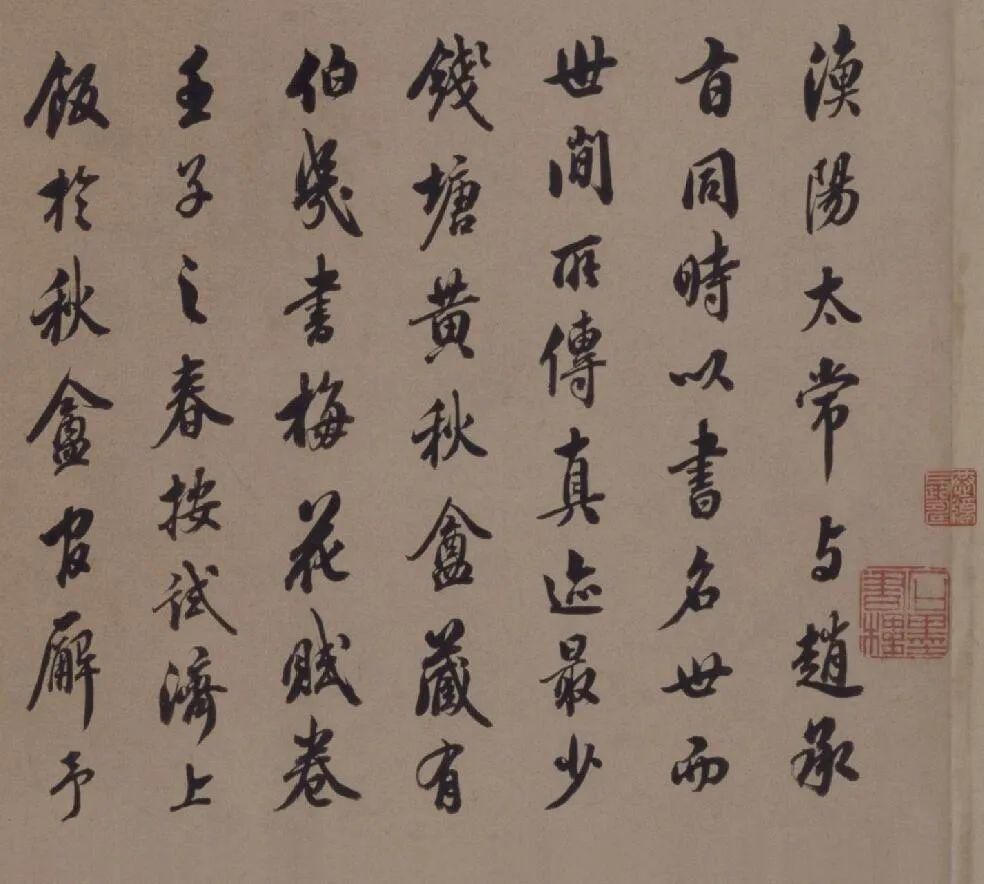 漁陽太常与趙承
旨同時以書名世而
世間所傳真迹最少
錢塘黄秋盦藏有
伯幾書梅花賦卷
壬子之春按試濟上
飯於秋盦官廨予
石墨書樓